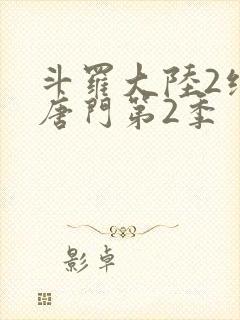 斗羅大陸2
唐門第2季
影卓